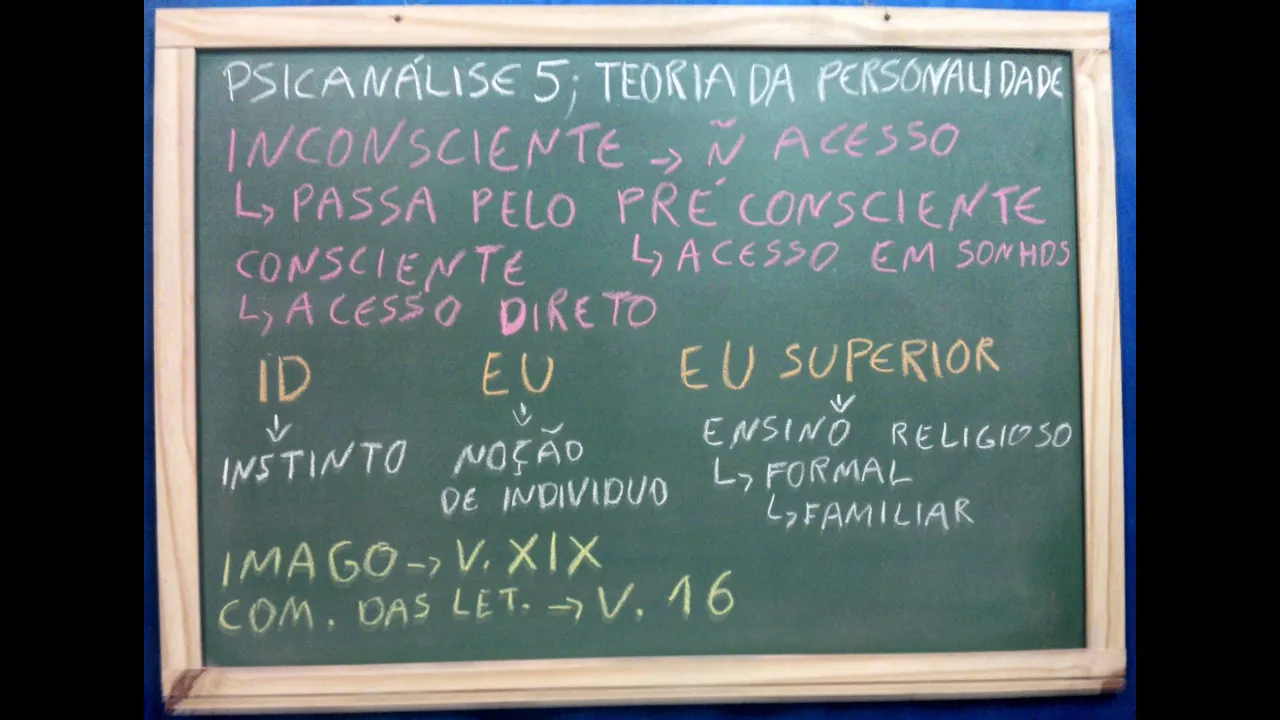 PSICANÁLISE 5; TEORIA DA PERSONALIDADE
INCONSCIENTE → Ñ ACESSO
↳ PASSA PELO PRÉ CONSCIENTE
CONSCIENTE ↳ ACESSO EM SONHOS
↳ ACESSO DIRETO
ID EU EU SUPERIOR
↓ ↓ ↓
INSTINTO NOÇÃO ENSINO RELIGIOSO
DE INDIVIDUO ↳ FORMAL
↳ FAMILIAR
IMAGO → V. XIX
COM. DAS LET. → V. 16